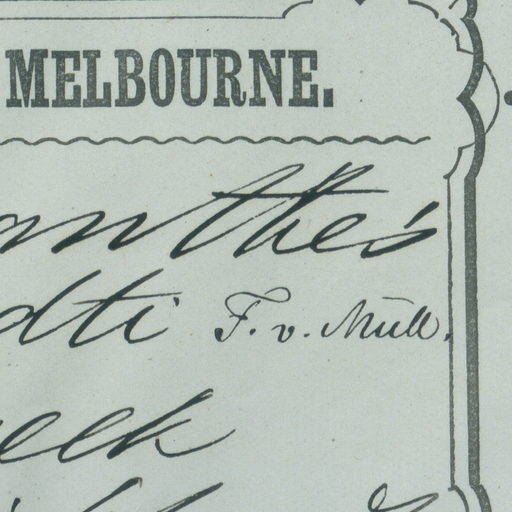 MELBOURNE.
anthes
dti F. v. Müll.
eek